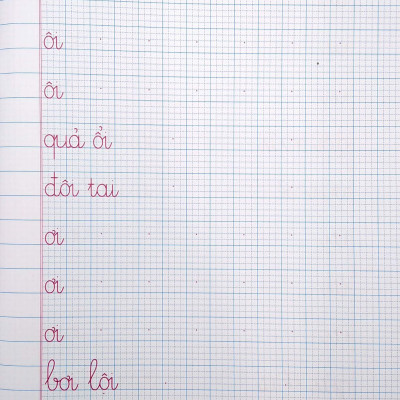 ôi
ôi
quả ổi
đôi tai
ơi
ơi
ơi
bơi lội